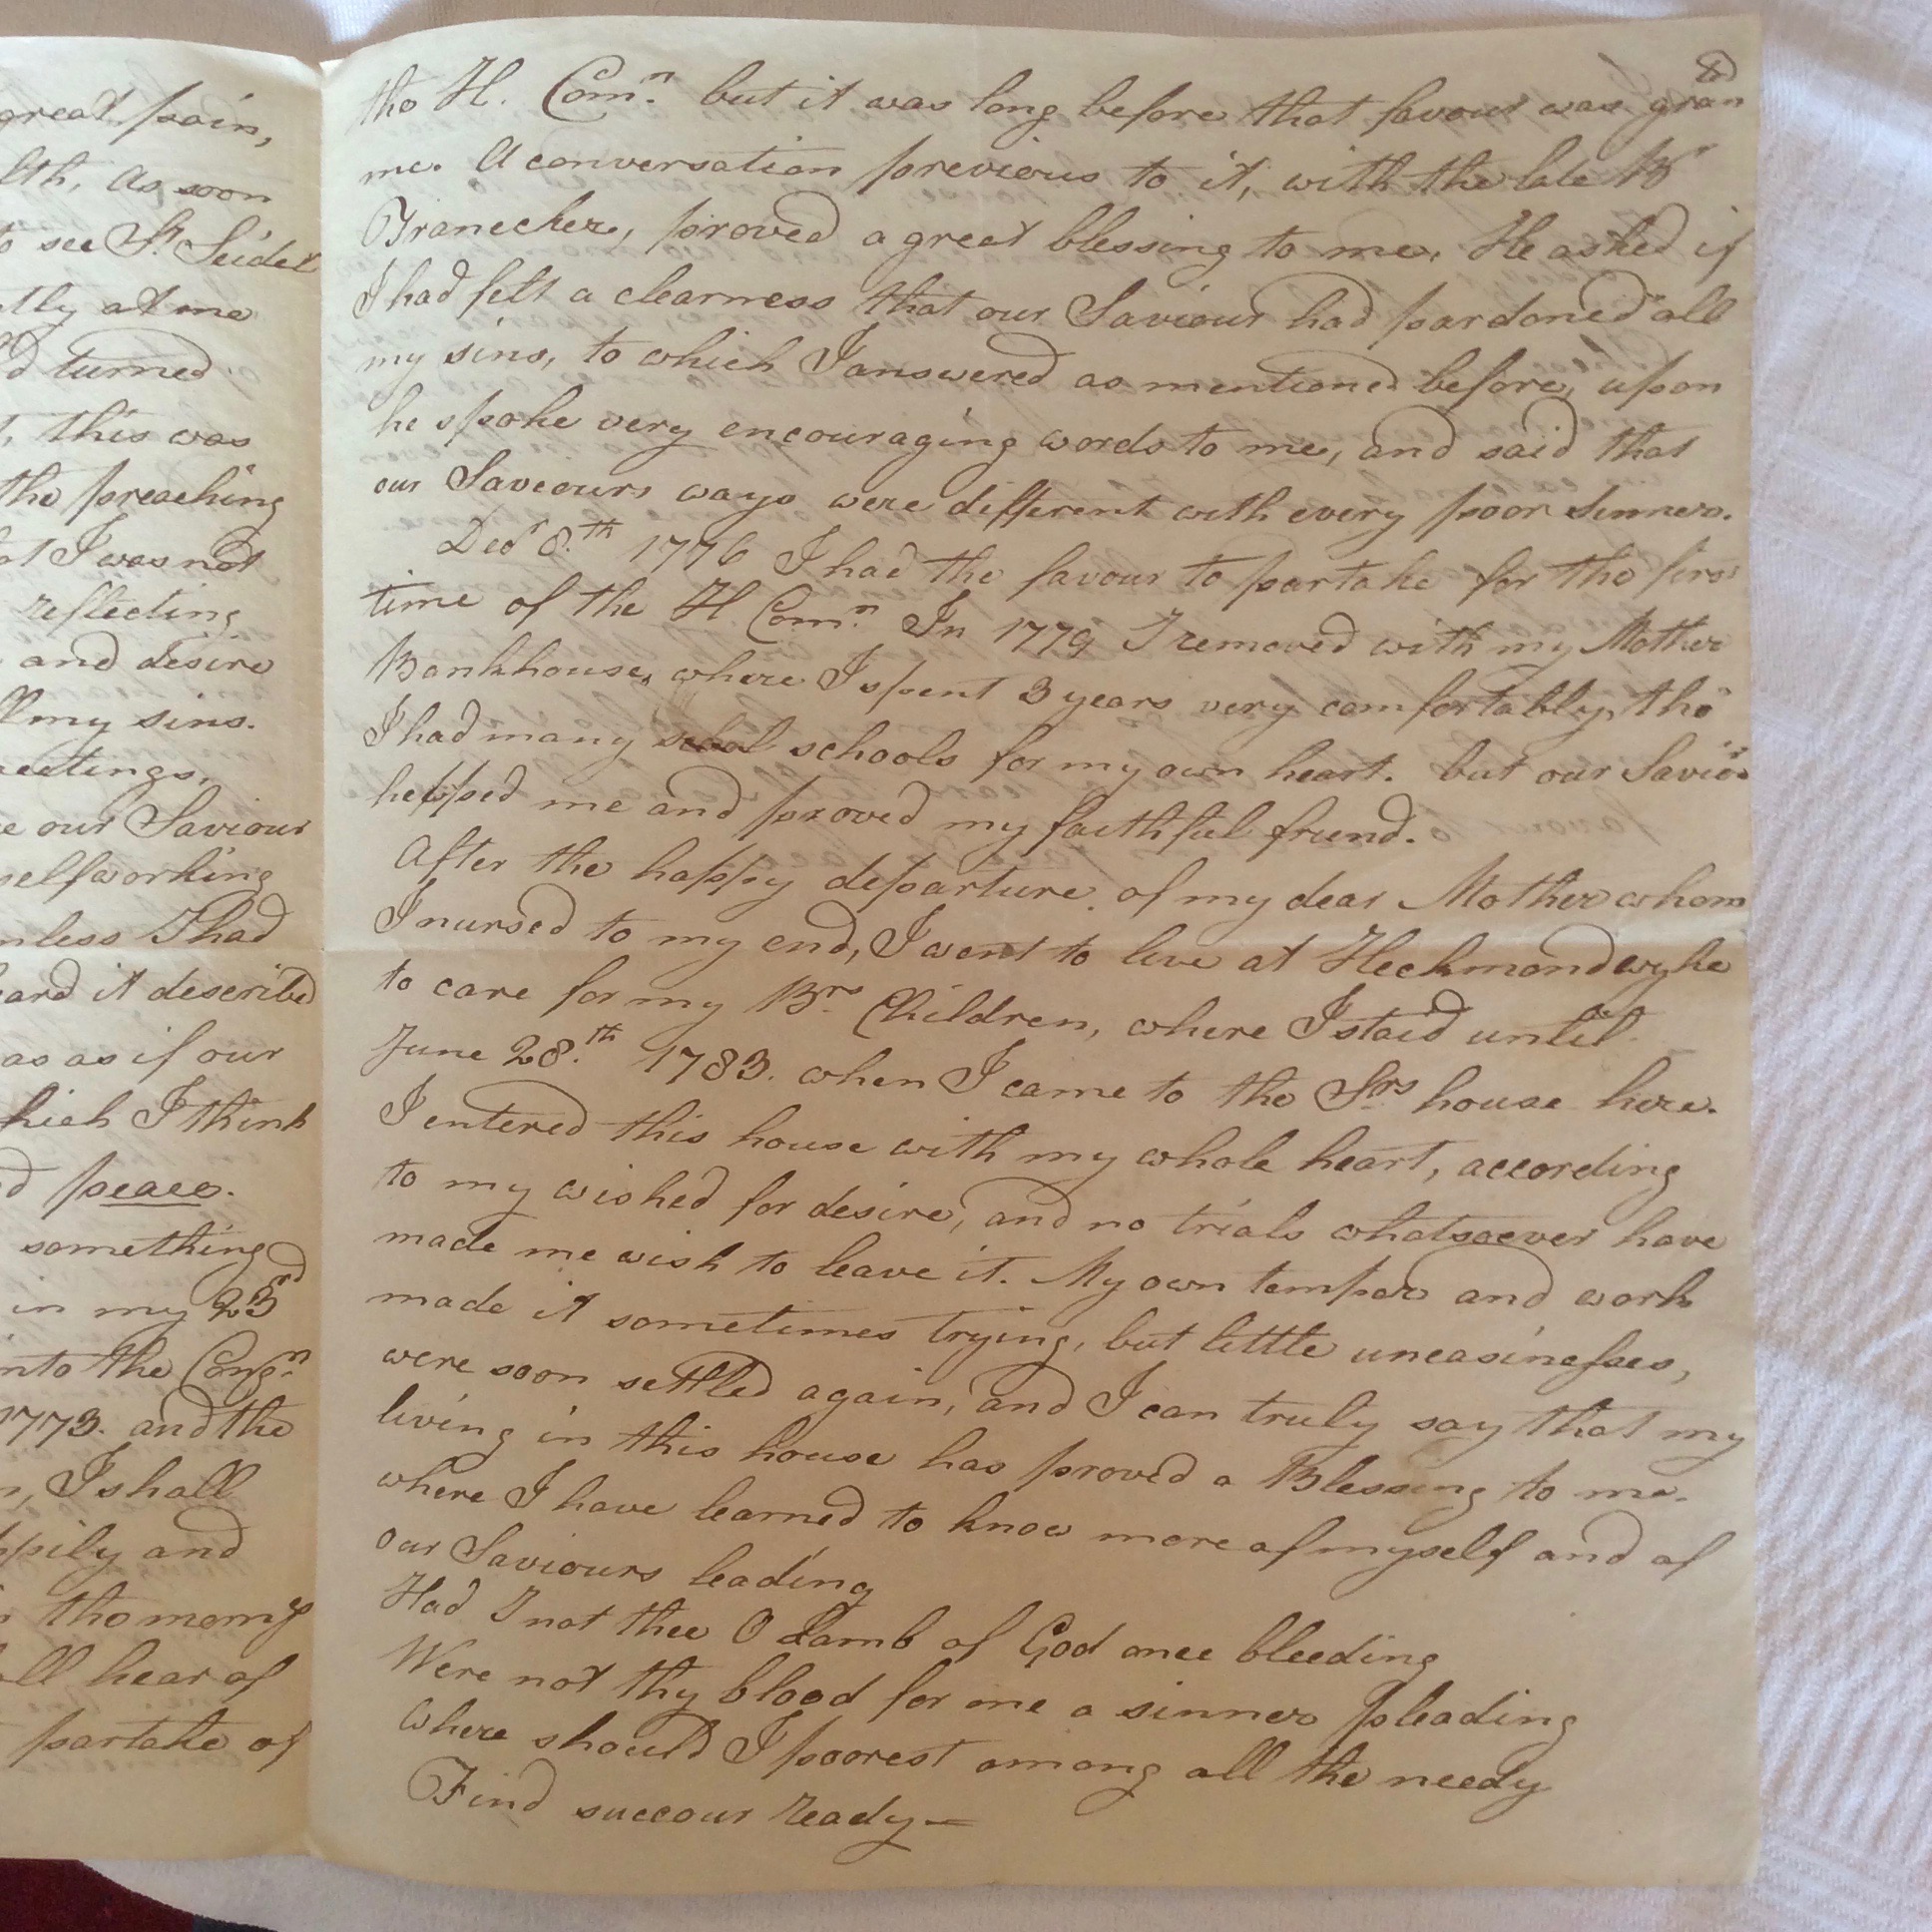 great pain,
lth, As soon
to see Sr. Seidel
ntly at me
d turned
t, this was
the preaching
at I was not
reflecting
and desire
ll my sins.
meetings,
e our Saviour
selfworking
nless I had
eard it described
as as if our
hich I think
d peace.
something
in my 23d
into the Congn.
1773. and the
n, I shall
ppily and
thomemg
all hear of
partake of
8
the H. Comn. but it was long before that favour was gran
me. A conversation previous to it, with the late Br
Tranecker, proved a great blessing to me. He asked if
I had felt a clearness that our Saviour had pardoned all
my sins, to which I answered as mentioned before, upon
he spoke very encouraging words to me, and said that
our Saviours ways were different with every poor sinner.
Decr 8.th 1776 I had the favour to partake for the firs
time of the H Comn. In 1779 I removed with my Mother
Bankhouse, where I spent 3 years very comfortably, tho
I had many schools for my own heart. but our Savior
helpped me and proved my faithful friend.
After the happy departure of my dear Mother whom
I nursed to my end, I went to live at Heckmondwyke
to care for my Brs. Children, where I staid until
June 28.th 1783. when I came to the Srs. house here.
I entered this house with my whole heart, according
to my wished for desire, and no trials whatsoever have
made me wish to leave it. My own temper and work
made it sometimes trying, but little uneasinesses,
were soon settled again, and I can truly say that my
living in this house has proved a Blessing to me.
where I have learned to know more of myself and of
our Saviours leading
Had I not thee O Lamb of God once bleeding
Were not thy blood for me a sinner pleading
Where should I poorest among all the needy
Find succour ready—